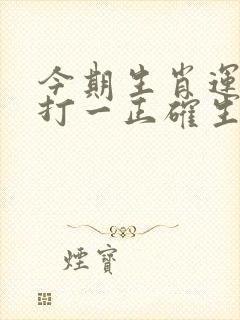 今期生肖運
打一正確生
煙寶